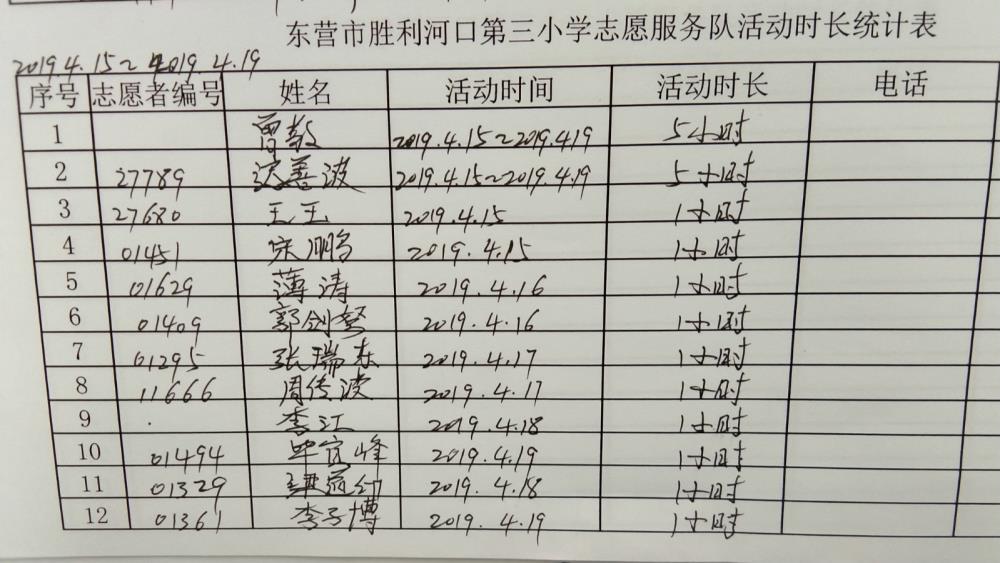 东营市胜利河口第三小学志愿服务队活动时长统计表
2019.4.15~2019.4.19
序号 志愿者编号 姓名 活动时间 活动时长 电话
1 曾敏 2019.4.15~2019.4.19 5小时
2 27789 善波 2019.4.15~2019.4.19 5小时
3 27680 王玉 2019.4.15 1小时
4 01451 宋鹏 2019.4.15 1小时
5 01629 薄涛 2019.4.16 1小时
6 01409 郭剑 2019.4.16 1小时
7 01295 张瑞东 2019.4.17 1小时
8 11666 周传波 2019.4.17 1小时
9 李江 2019.4.18 1小时
10 01494 毕宜峰 2019.4.19 1小时
11 01329 2019.4.18 1小时
12 01361 李子博 2019.4.19 1小时